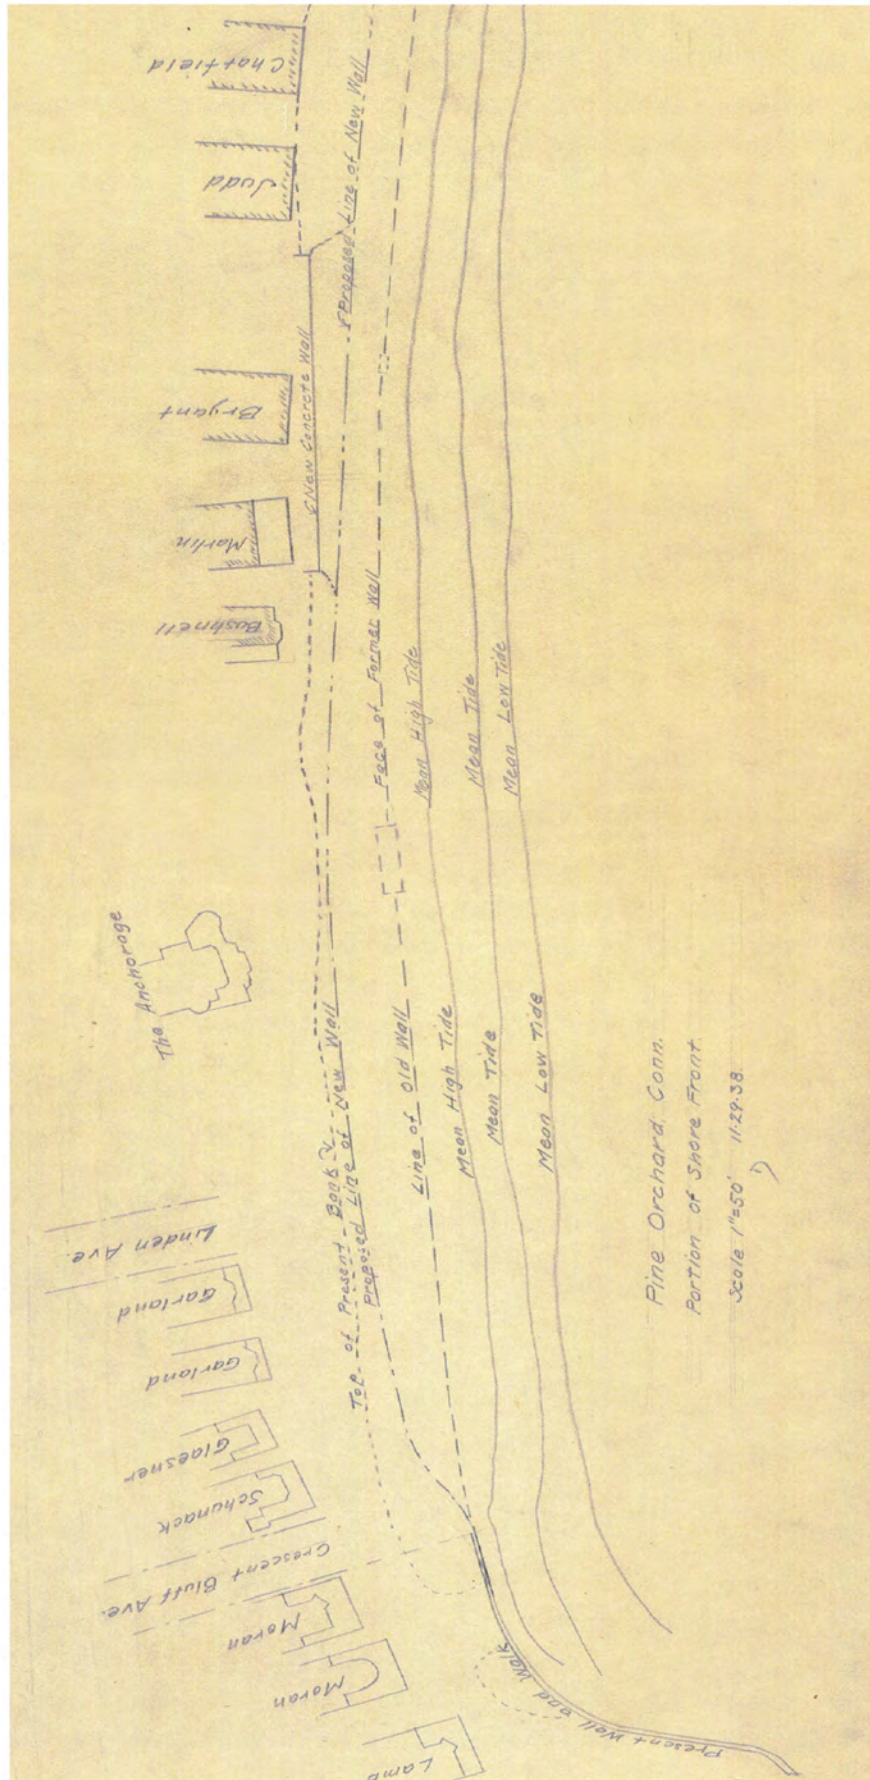 Chatfield
Judd
Bryant
Marlin
Bushnell
The Anchorage
Linden Ave.
Garland
Garland
Glaesner
Schunack
Crescent Bluff Ave.
Moran
Moran
Lamb
Proposed Line of New Wall
New Concrete Wall
Face of Former Wall
Mean High Tide
Mean Tide
Mean Low Tide
Top of Present Bank
Proposed Line of New Wall
Line of Old Wall
Mean High Tide
Mean Tide
Mean Low Tide
Present Wall and Walk
Pine Orchard, Conn.
Portion of Shore Front.
Scale 1"=50' 11-29-38.